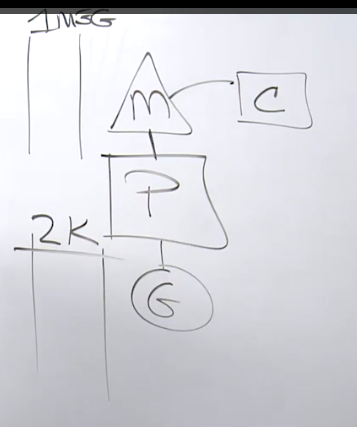 1MSG
M
C
P
2K
G